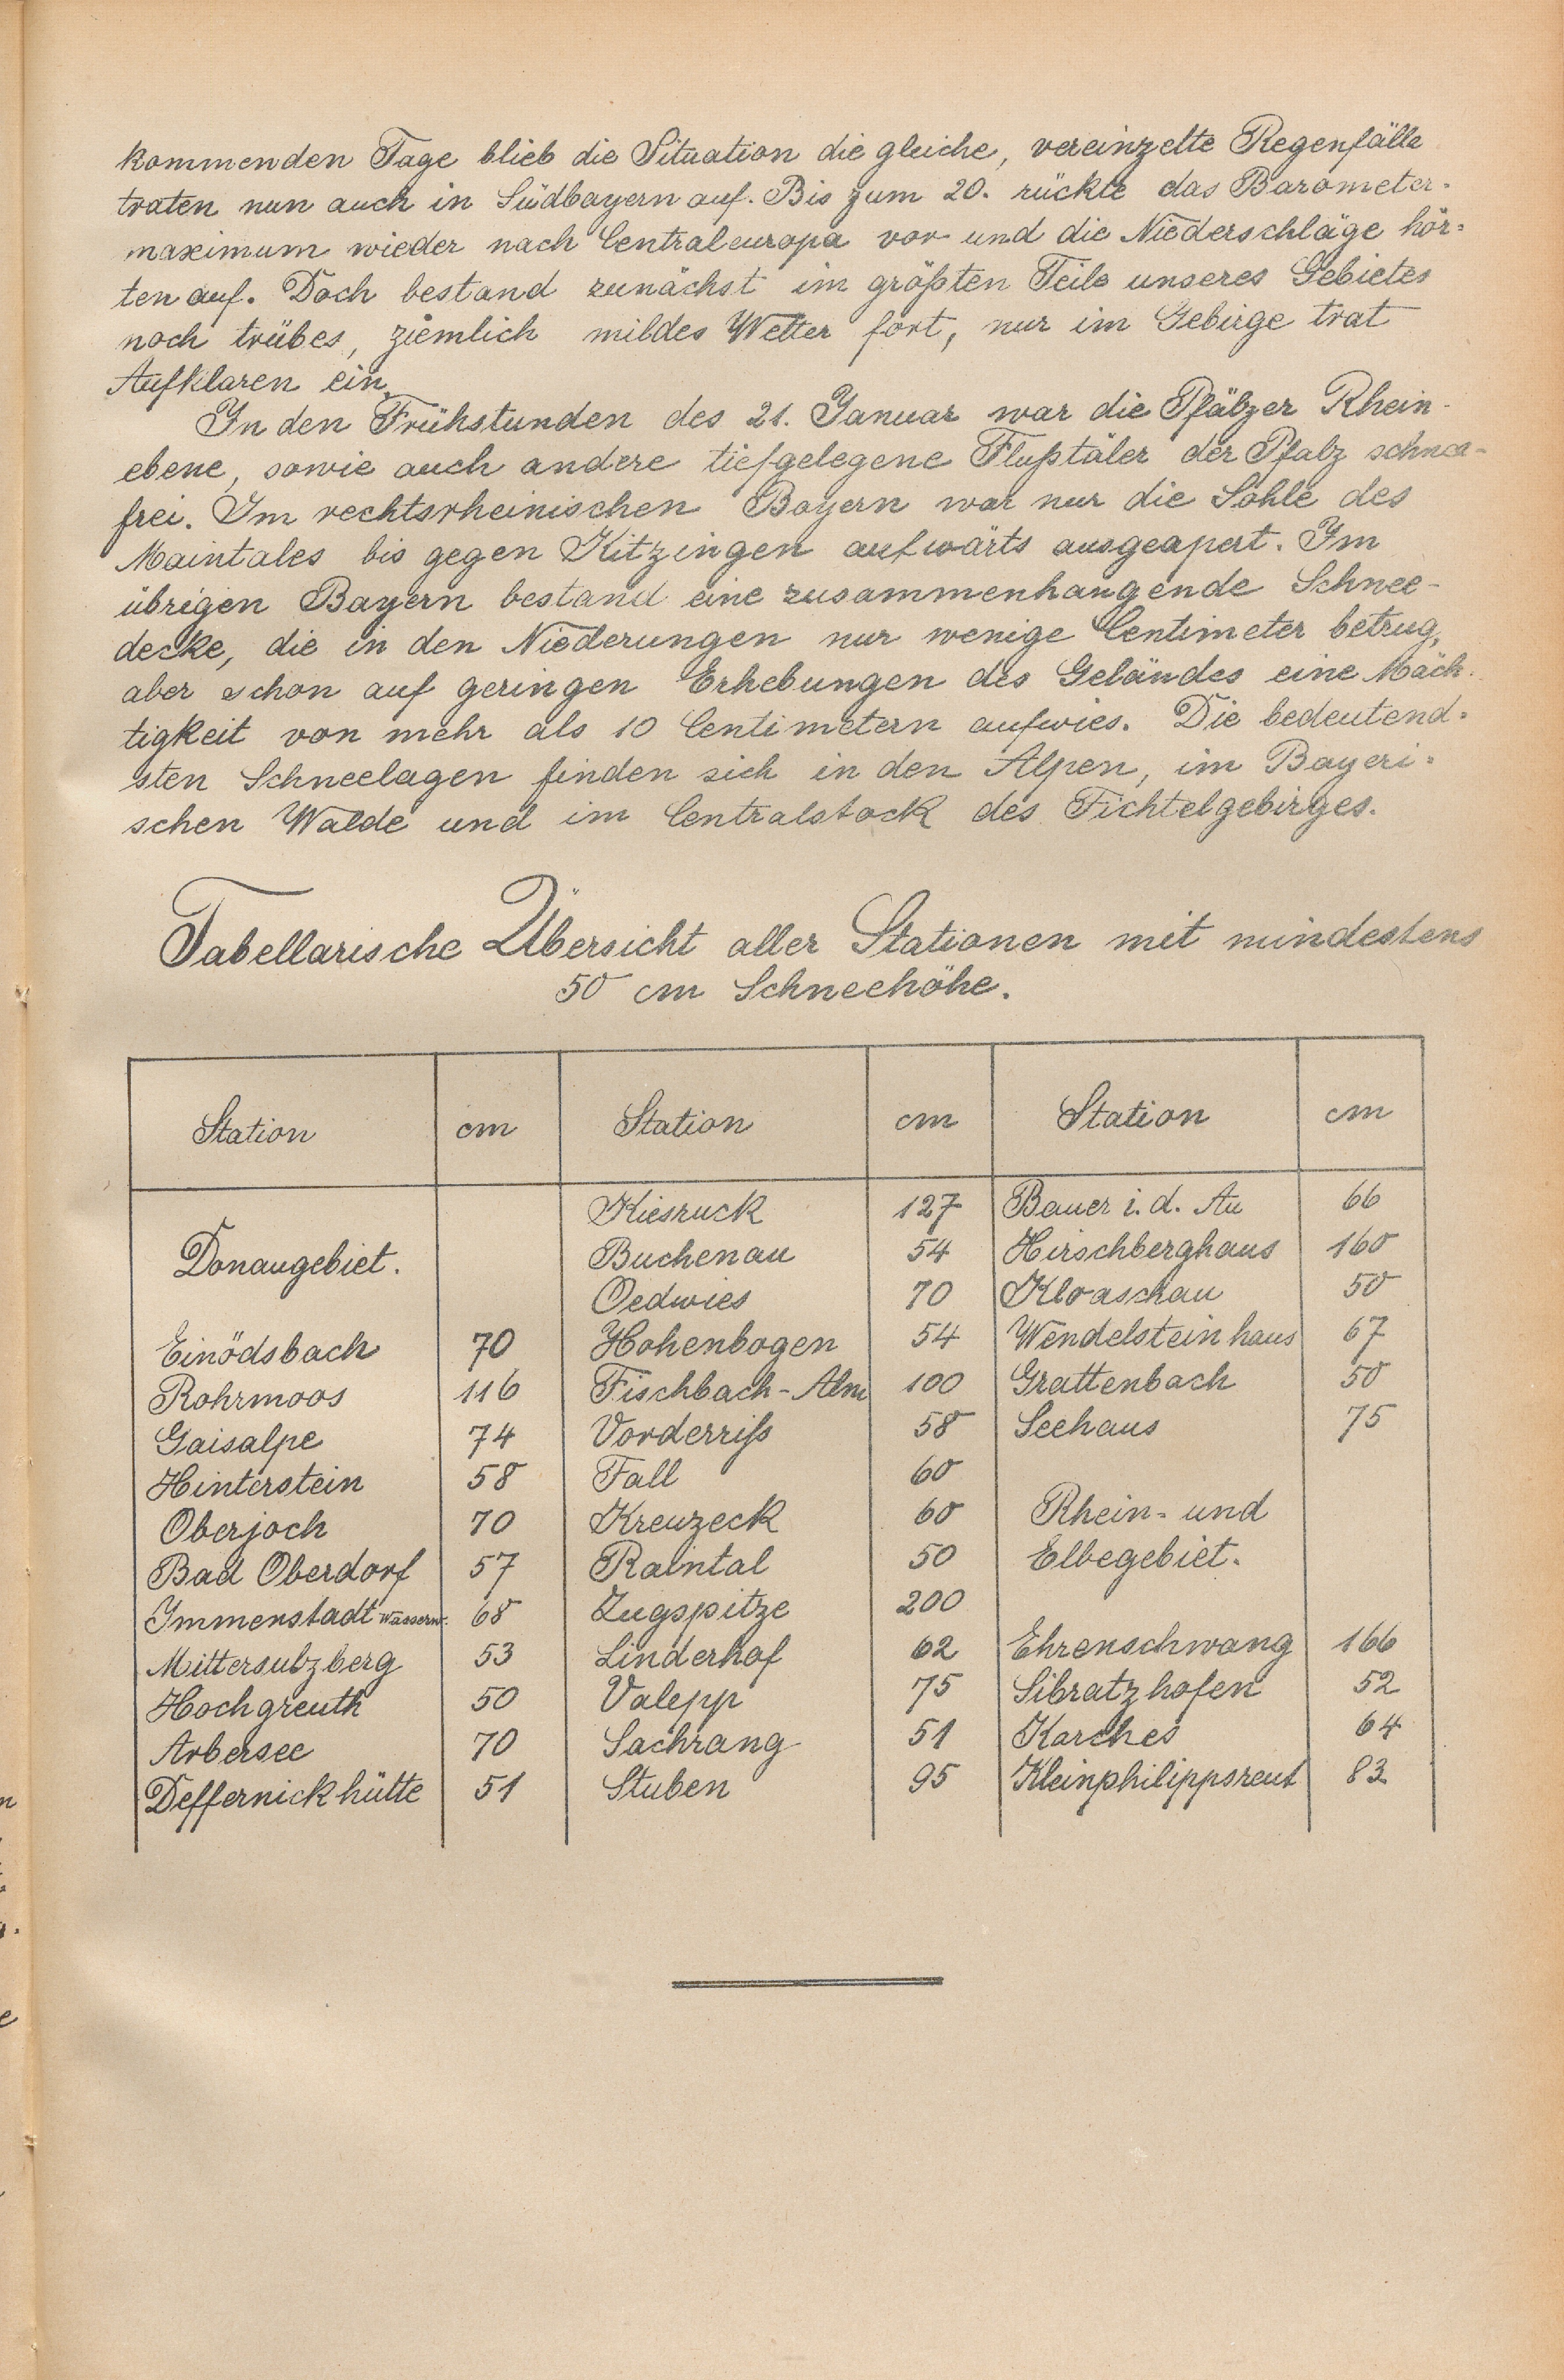 kommenden Tage blieb die Situation die gleiche, vereinzelte Regenfälle
traten nun auch in Südbayern auf. Bis zum 20. rückte das Barometer-
maximum wieder nach Centraleuropa vor und die Niederschläge hör-
ten auf. Doch bestand zunächst im größten Teile unseres Gebietes
noch trübes, ziemlich mildes Wetter fort, nur im Gebirge trat
Aufklaren ein.
In den Frühstunden des 21. Januar war die Pfälzer Rhein-
ebene, sowie auch andere tiefgelegene Flußtäler der Pfalz schnee-
frei. Im rechtsrheinischen Bayern war nur die Sohle des
Maintales bis gegen Kitzingen aufwärts ausgeapert. Im
übrigen Bayern bestand eine zusammenhangende Schnee-
decke, die in den Niederungen nur wenige Centimeter betrug,
aber schon auf geringen Erhebungen des Geländes eine Mäch-
tigkeit von mehr als 10 Centimetern aufwies. Die bedeutend-
sten Schneelagen finden sich in den Alpen, im Bayeri-
schen Walde und im Centralstock des Fichtelgebirges.
Tabellarische Übersicht aller Stationen mit mindestens
50 cm Schneehöhe.
Station cm Station cm Station cm
Kiesruck 127 Bauer i. d. Au 66
Donaugebiet. Buchenau 54 Hirschberghaus 160
Oedwies 70 Kloaschau 50
Einödsbach 70 Hohenbogen 54 Wendelsteinhaus 67
Rohrmoos 116 Fischbach-Alm 100 Grattenbach 50
Gaisalpe 74 Vorderriß 58 Seehaus 75
Hinterstein 58 Fall 60
Oberjoch 70 Kreuzeck 60 Rhein- und
Bad Oberdorf 57 Raintal 50 Elbegebiet.
Immenstadt Wasserw. 68 Zugspitze 200
Mittersulzberg 53 Linderhof 62 Ehrenschwang 166
Hochgreuth 50 Valepp 75 Sibratzhofen 52
Arbersee 70 Sachrang 51 Karches 64
Deffernickhütte 51 Stuben 95 Kleinphilippsreut 83